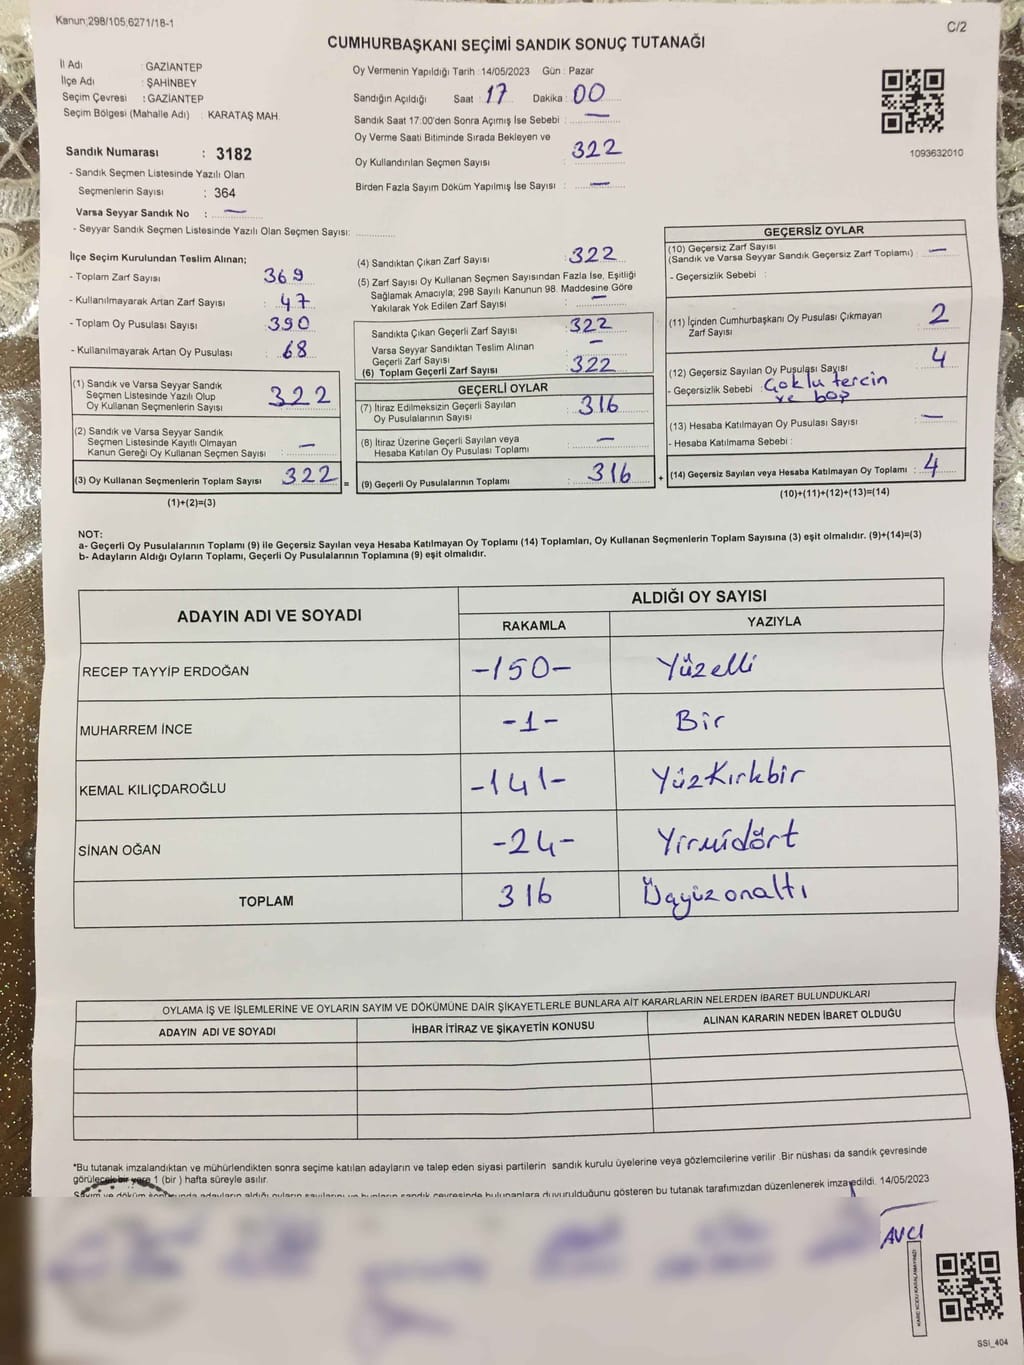 Kanun;298/105;6271/18-1
C/2
CUMHURBAŞKANI SEÇİMİ SANDIK SONUÇ TUTANAĞI
İl Adı : GAZİANTEP
İlçe Adı : ŞAHİNBEY
Seçim Çevresi : GAZİANTEP
Seçim Bölgesi (Mahalle Adı) : KARATAŞ MAH.
Sandık Numarası : 3182
- Sandık Seçmen Listesinde Yazılı Olan
Seçmenlerin Sayısı : 364
Varsa Seyyar Sandık No : —
- Seyyar Sandık Seçmen Listesinde Yazılı Olan Seçmen Sayısı:
Oy Vermenin Yapıldığı Tarih : 14/05/2023 Gün : Pazar
Sandığın Açıldığı Saat : 17 Dakika : 00
Sandık Saat 17:00'den Sonra Açımış İse Sebebi : —
Oy Verme Saati Bitiminde Sırada Bekleyen ve
Oy Kullandırılan Seçmen Sayısı : 322
Birden Fazla Sayım Döküm Yapılmış İse Sayısı : —
1093632010
İlçe Seçim Kurulundan Teslim Alınan;
- Toplam Zarf Sayısı : 369
- Kullanılmayarak Artan Zarf Sayısı : 47
- Toplam Oy Pusulası Sayısı : 390
- Kullanılmayarak Artan Oy Pusulası : 68
(1) Sandık ve Varsa Seyyar Sandık
Seçmen Listesinde Yazılı Olup
Oy Kullanan Seçmenlerin Sayısı : 322
(2) Sandık ve Varsa Seyyar Sandık
Seçmen Listesinde Kayıtlı Olmayan
Kanun Gereği Oy Kullanan Seçmen Sayısı : —
(3) Oy Kullanan Seçmenlerin Toplam Sayısı : 322
(1)+(2)=(3)
(4) Sandıktan Çıkan Zarf Sayısı : 322
(5) Zarf Sayısı Oy Kullanan Seçmen Sayısından Fazla İse, Eşitliği
Sağlamak Amacıyla; 298 Sayılı Kanunun 98. Maddesine Göre
Yakılarak Yok Edilen Zarf Sayısı : —
Sandıkta Çıkan Geçerli Zarf Sayısı : 322
Varsa Seyyar Sandıktan Teslim Alınan
Geçerli Zarf Sayısı : —
(6) Toplam Geçerli Zarf Sayısı : 322
GEÇERLİ OYLAR
(7) İtiraz Edilmeksizin Geçerli Sayılan
Oy Pusulalarının Sayısı : 316
(8) İtiraz Üzerine Geçerli Sayılan veya
Hesaba Katılan Oy Pusulası Toplamı : —
= (9) Geçerli Oy Pusulalarının Toplamı : 316
GEÇERSİZ OYLAR
(10) Geçersiz Zarf Sayısı
(Sandık ve Varsa Seyyar Sandık Geçersiz Zarf Toplamı) : —
- Geçersizlik Sebebi :
(11) İçinden Cumhurbaşkanı Oy Pusulası Çıkmayan
Zarf Sayısı : 2
(12) Geçersiz Sayılan Oy Pusulası Sayısı : 4
- Geçersizlik Sebebi : Çoklu tercin
ve boş
(13) Hesaba Katılmayan Oy Pusulası Sayısı : —
- Hesaba Katılmama Sebebi :
+ (14) Geçersiz Sayılan veya Hesaba Katılmayan Oy Toplamı : 4
(10)+(11)+(12)+(13)=(14)
NOT:
a- Geçerli Oy Pusulalarının Toplamı (9) ile Geçersiz Sayılan veya Hesaba Katılmayan Oy Toplamı (14) Toplamları, Oy Kullanan Seçmenlerin Toplam Sayısına (3) eşit olmalıdır. (9)+(14)=(3)
b- Adayların Aldığı Oyların Toplamı, Geçerli Oy Pusulalarının Toplamına (9) eşit olmalıdır.
ADAYIN ADI VE SOYADI
ALDIĞI OY SAYISI
RAKAMLA YAZIYLA
RECEP TAYYİP ERDOĞAN -150- Yüzelli
MUHARREM İNCE -1- Bir
KEMAL KILIÇDAROĞLU -141- YüzKırkbir
SİNAN OĞAN -24- Yirmidört
TOPLAM 316 Üçyüzonaltı
OYLAMA İŞ VE İŞLEMLERİNE VE OYLARIN SAYIM VE DÖKÜMÜNE DAİR ŞİKAYETLERLE BUNLARA AİT KARARLARIN NELERDEN İBARET BULUNDUKLARI
ADAYIN ADI VE SOYADI İHBAR İTİRAZ VE ŞİKAYETİN KONUSU ALINAN KARARIN NEDEN İBARET OLDUĞU
*Bu tutanak imzalandıktan ve mühürlendikten sonra seçime katılan adayların ve talep eden siyasi partilerin sandık kurulu üyelerine veya gözlemcilerine verilir .Bir nüshası da sandık çevresinde
görülecek bir yere 1 (bir ) hafta süreyle asılır.
Sayım ve döküm sonucunda adayların aldığı oyların sayılarını ve bunların sandık çevresinde bulunanlara duyurulduğunu gösteren bu tutanak tarafımızdan düzenlenerek imza edildi. 14/05/2023
AVCI
SSİ_404